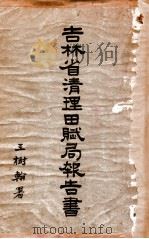 吉林省清理田賦局報告書
王樹翰署